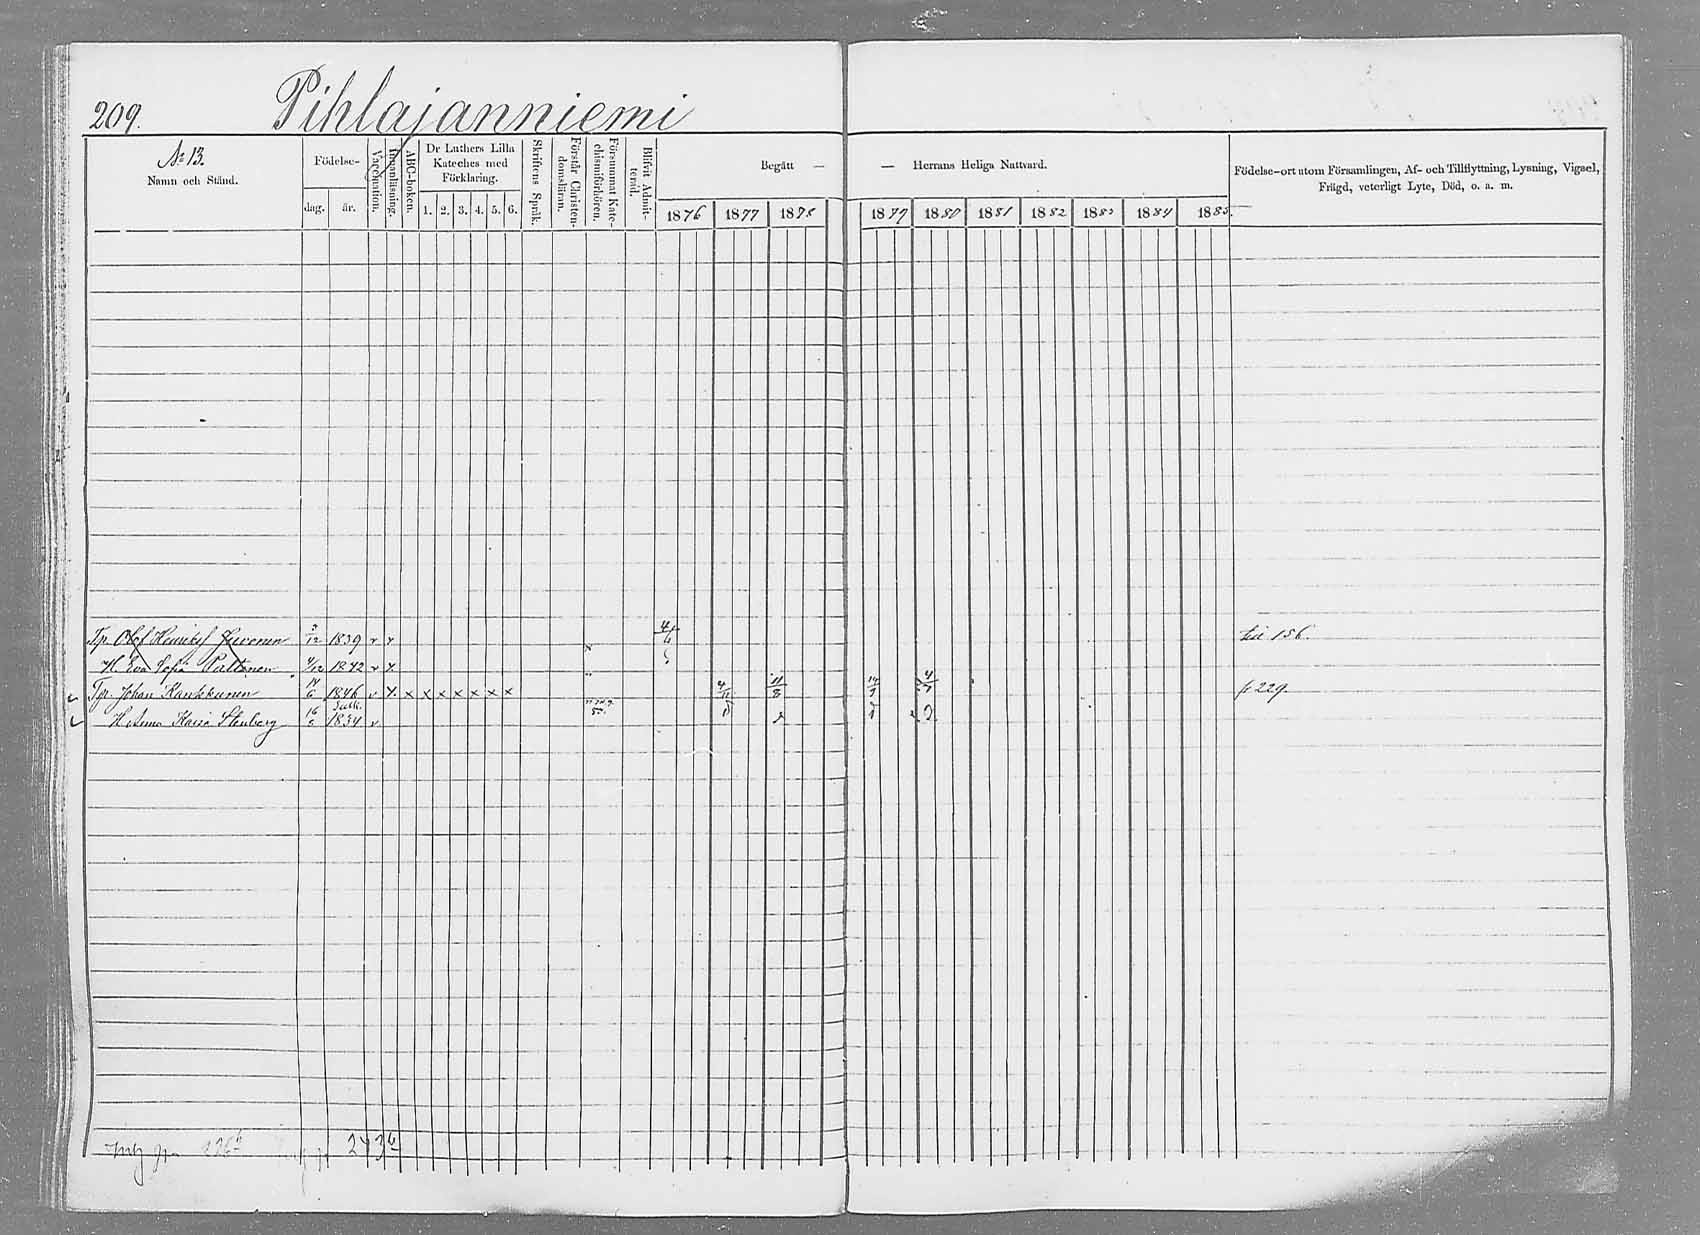 209. Pihlajanniemi
No 13.
Namn och Stånd.
Födelse-
dag. år.
Vaccination.
Innanläsning.
ABC-boken.
Dr Luthers Lilla
Kateches med
Förklaring.
1. 2. 3. 4. 5. 6.
Skriftens Språk.
Förstår Christen-
domsläran.
Försummat Kate-
chismiförhören.
Blifvit Admit-
terad.
Begått — — Herrans Heliga Nattvard.
1876 1877 1878 1879 1880 1881 1882 1883 1884 1885.
Födelse-ort utom Församlingen, Af- och Tillflyttning, Lysning, Vigsel,
Frägd, veterligt Lyte, Död, o. a. m.
Tp. Olof Henriks 3/12 1839 v x 156.
H. Eva Sofia Paltonen 4/12 1842 v x
Tp. Johan Kaukkunen 14/6 1846 v x x x x x x x x 4/11 11/8 fr 229.
H. Anna Kaisa Stenberg 16 1834 v